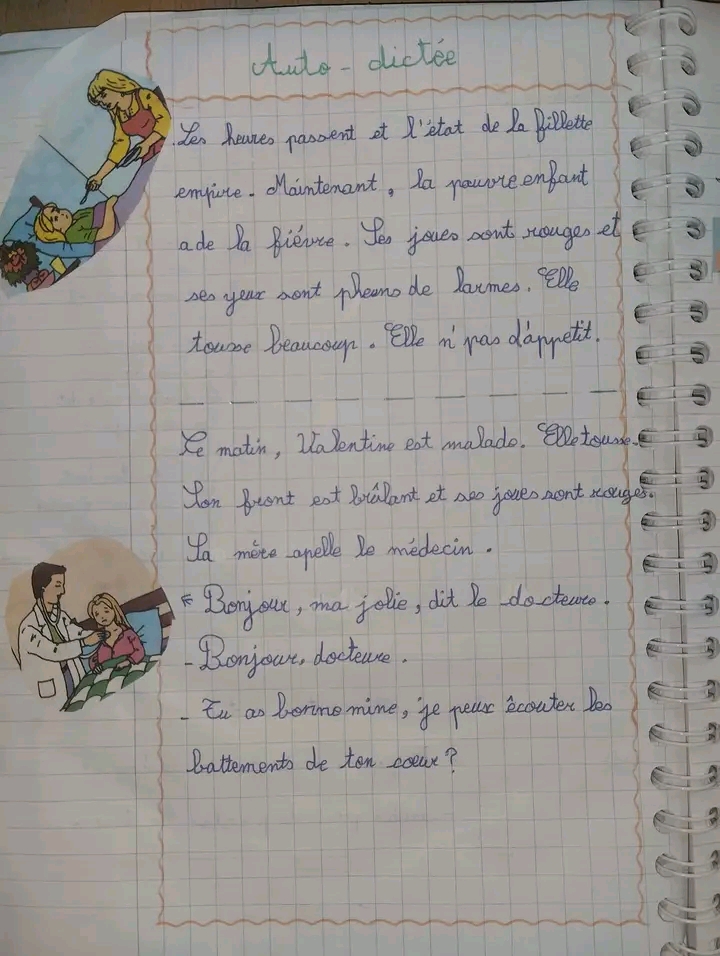 Auto - dictée
Les heures passent et l'état de la fillette
empire. Maintenant, la pauvre enfant
a de la fiévre. Ses joues sont rouges et
ses yeux sont pleens de larmes. Elle
tousse beaucoup. Elle n' pas d'appetit.
Le matin, Valentine est malade. Elle tousse.
Son front est brûlant et ses joues sont rouges.
Sa mère apelle le médecin.
« Bonjour, ma jolie, dit le docteure.
- Bonjour, docteure.
- Tu as bonne mine, je peux êcouter les
battements de ton coeur ?